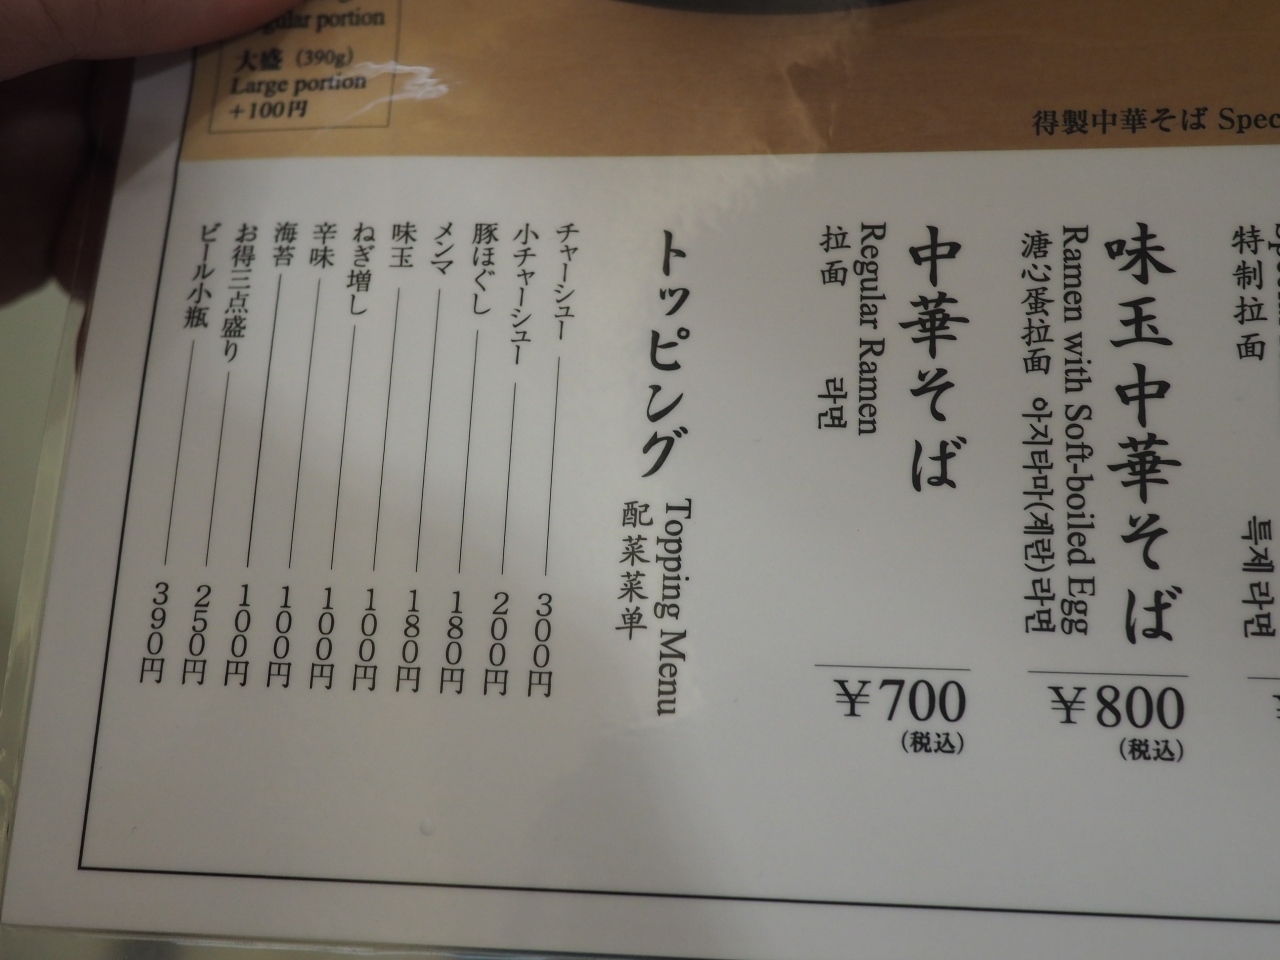 portion
大盛（390g）
Large portion
＋100円
得製中華そば Spec
特制拉面
특제 라면
味玉中華そば
Ramen with Soft-boiled Egg
溏心蛋拉面 아지타마(계란)라면
￥800
（税込）
中華そば
Regular Ramen
拉面 라면
￥700
（税込）
トッピング
Topping Menu
配菜菜单
チャーシュー 300円
小チャーシュー 200円
豚ほぐし 180円
メンマ 180円
味玉 100円
ねぎ増し 100円
辛味 100円
海苔 100円
お得三点盛り 250円
ビール小瓶 390円